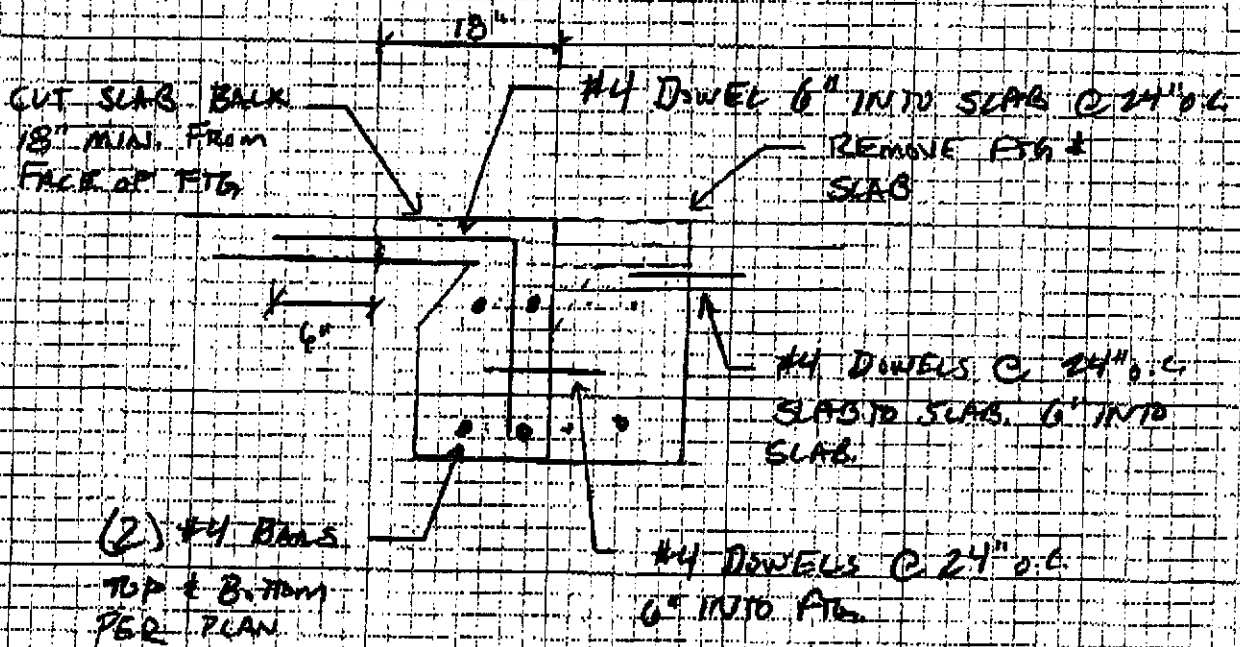 18"
CUT SLAB BACK
18" MIN. FROM
FACE OF FTG
#4 DOWEL 6" INTO SLAB @ 24" O.C.
REMOVE FTG &
SLAB
6"
#4 DOWELS @ 24" O.C.
SLAB TO SLAB. 6" INTO
SLAB.
(2) #4 BARS
TOP & BOTTOM
PER PLAN
#4 DOWELS @ 24" O.C.
6" INTO FTG.